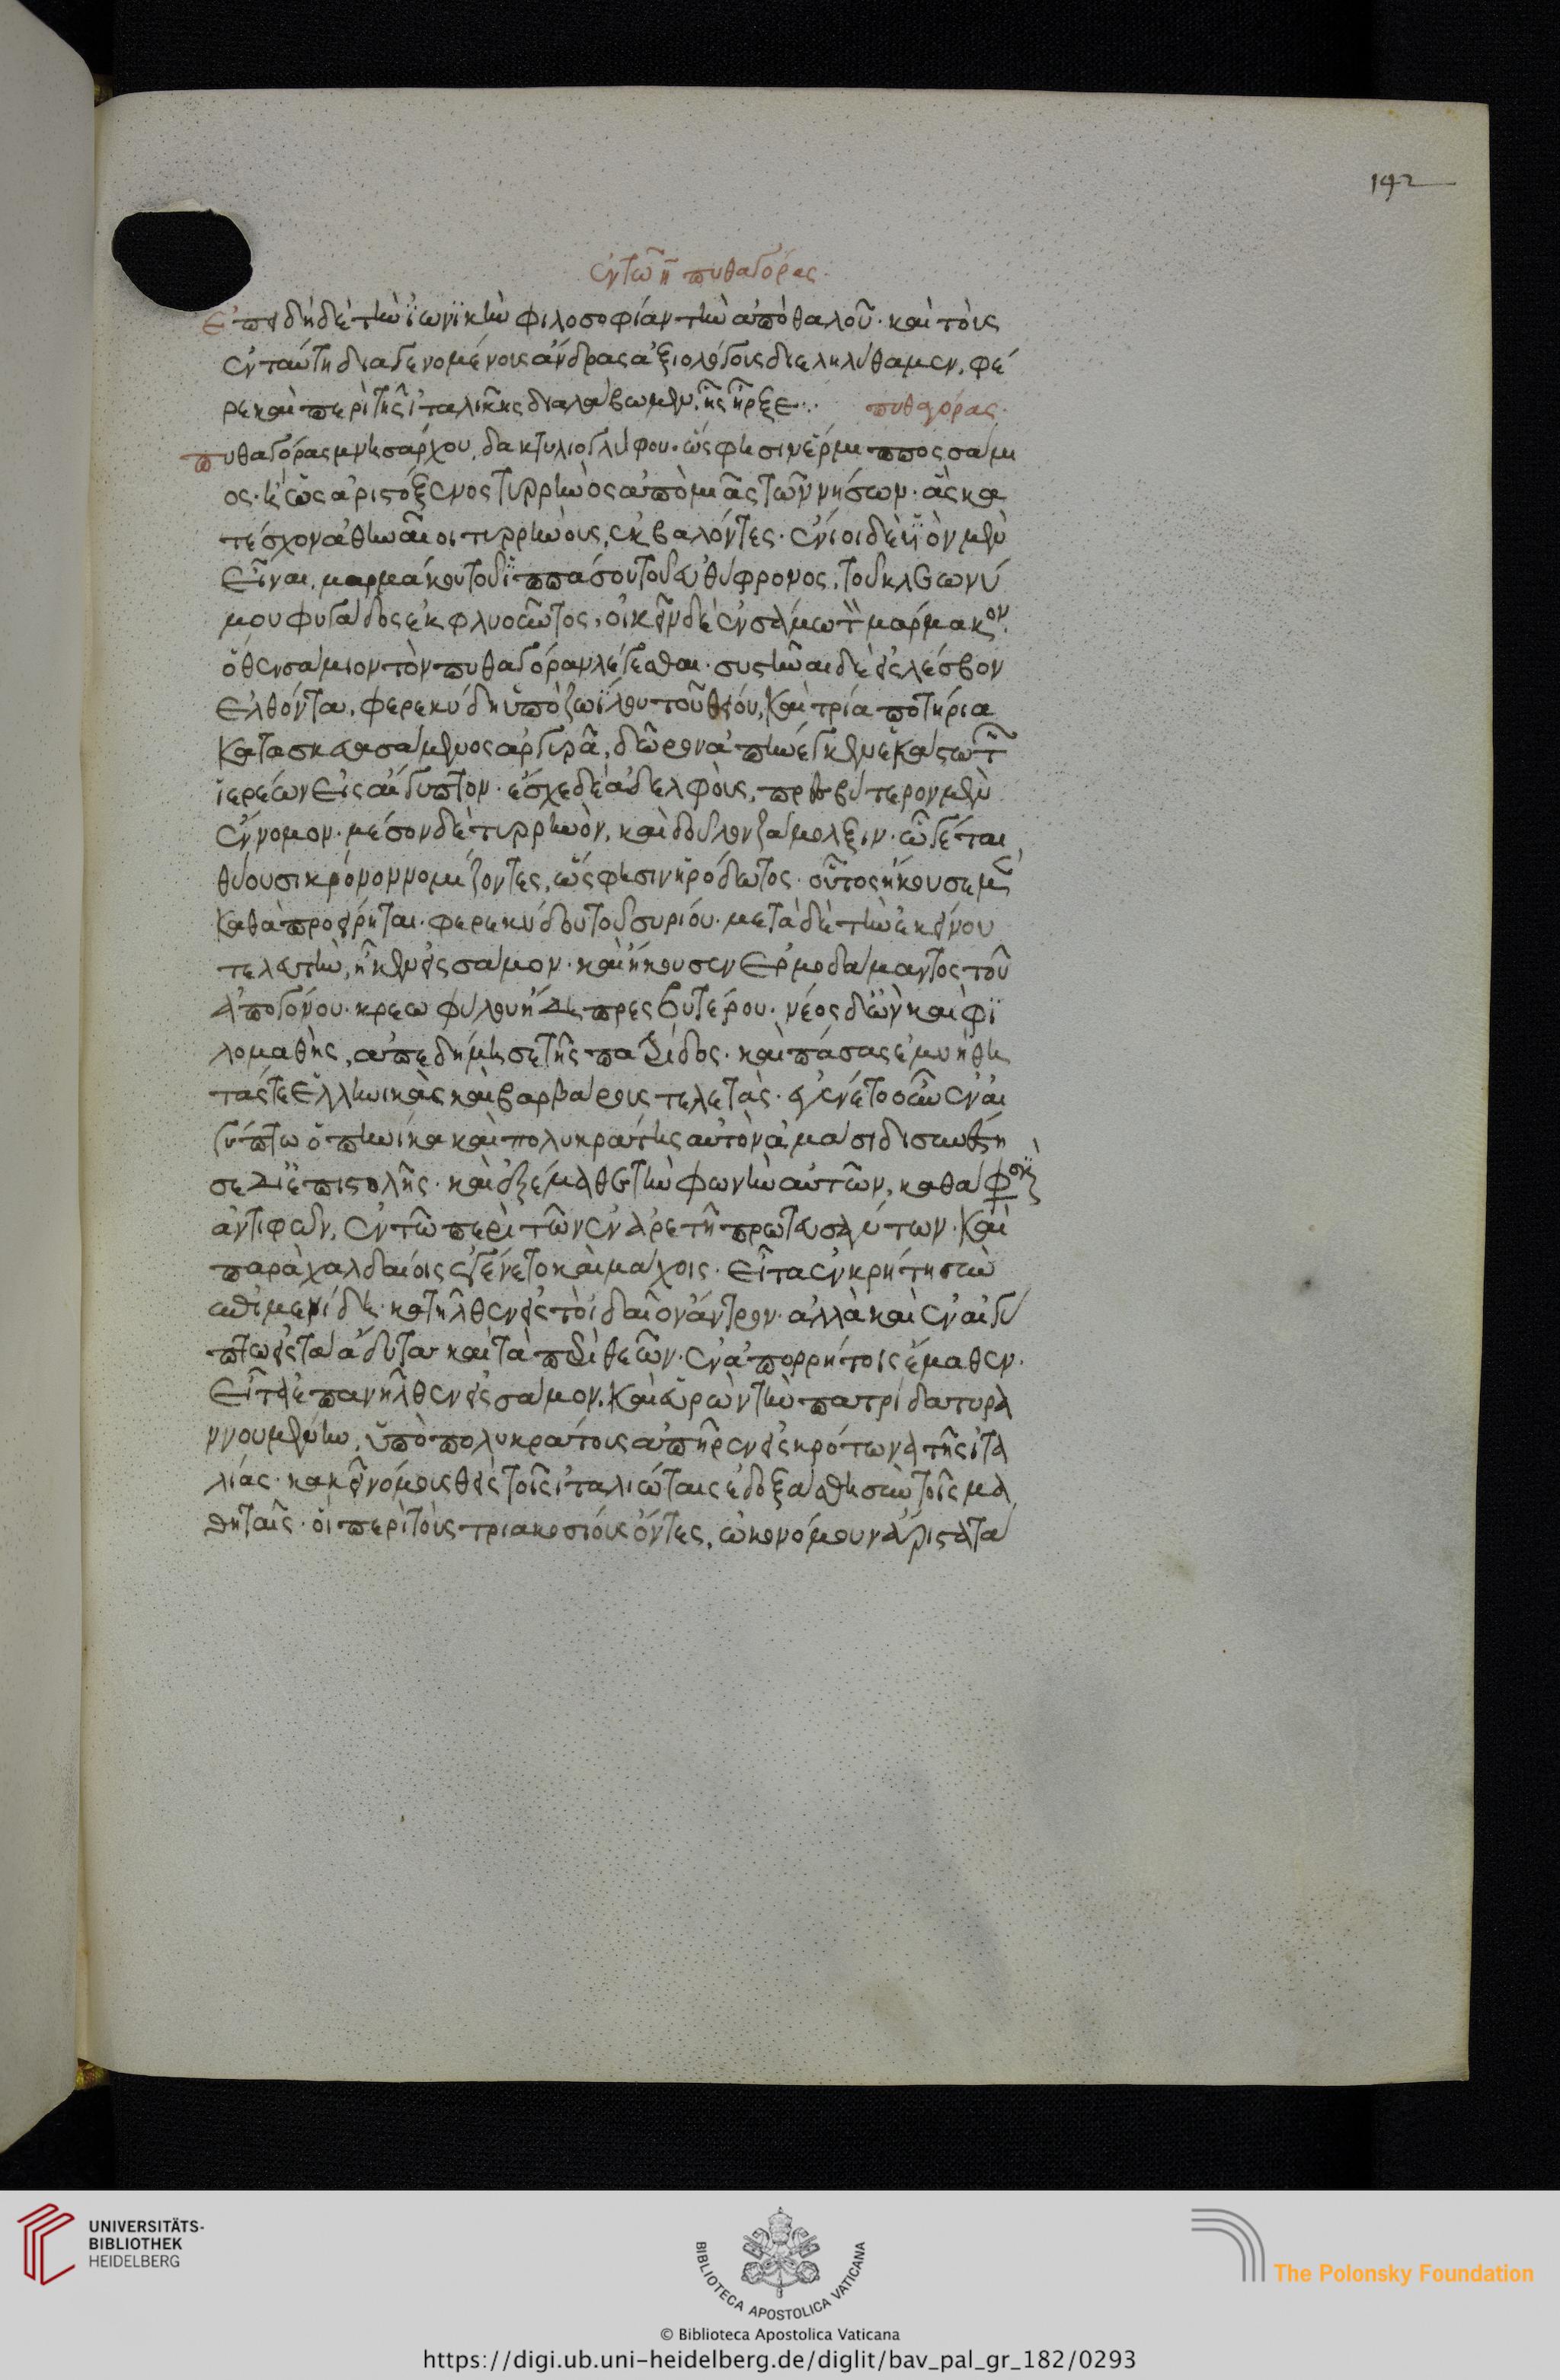 192
ἐν τῶ η̄ πυθαγόρας.
Ἐπειδὴ δὲ τὴν ἰωνϊκὴν φιλοσοφίαν τὴν ἀπὸ θαλοῦ. καὶ τοὺς
ἐν ταύτη διαγενομένους ἄνδρας ἀξιολόγους διεληλύθαμεν, φέ
ρε καὶ περὶ τῆς ἰταλικῆς διαλάβωμεν. ἧς ἦρξε πυθαγόρας.
πυθαγόρας μνησάρχου, δακτυλιογλύφου. ὥς φησιν ἕρμιππος, σάμι
ος. ἢ ὡς ἀριστόξενος τυρρηνὸς ἀπὸ μιᾶς τῶν νήσων. ἃς κα
τέσχον ἀθηναῖοι τυρρηνοὺς ἐκβαλόντες. ἔνιοι δὲ ὑϊὸν μὲν
εἶναι, μαρμάκου τοῦ ἱππάσου τοῦ εὐθύφρονος, τοῦ κλεωνύ
μου φυγάδος ἐκ φλυοῦντος, οἰκεῖν δὲ ἐν σάμω τὸν μάρμακον.
ὅθεν σάμιον τὸν πυθαγόραν λέγεσθαι. συστῆναι δὲ εἰς λέσβον
ἐλθόντα, φερεκύδη ὑπὸ ζωΐλου τοῦ θείου, καὶ τρία ποτήρια
κατασκευασάμενος ἀργυρᾶ, δῶρον ἀπήνεγκεν ἑκάστω τῶν
ἱερέων εἰς αἴγυπτον. ἔσχε δὲ ἀδελφοὺς, πρεσβύτερον μὲν
εὔνομον. μέσον δὲ τυρρηνὸν, καὶ δοῦλον ζάμολξιν. ὧ γέται
θύουσι κρόνον νομίζοντες, ὥς φησιν ἡρόδωτος. οὗτος ἤκουσε μὲν
καθὰ προείρηται. φερεκύδου τοῦ συρίου. μετὰ δὲ τὴν ἐκείνου
τελευτὴν, ἧκεν εἰς σάμον. καὶ ἤκουσεν ἑρμοδάμαντος τοῦ
ἀπογόνου. κρεωφύλου ἤδη πρεσβυτέρου. νέος δ' ὢν καὶ φι
λομαθὴς, ἀπεδήμησε τῆς πατρίδος. καὶ πάσας ἐμυήθη
τάς τε ἑλληνικὰς καὶ βαρβάρους τελετὰς. ἐγένετο οὖν ἐν αἰ
γύπτω ὁπηνίκα καὶ πολυκράτης αὐτὸν ἀμάσιδι συνέστη
σε δι' ἐπιστολῆς. καὶ ἐξέμαθε τὴν φωνὴν αὐτῶν, καθά φησιν
ἀντιφῶν, ἐν τῶ περὶ τῶν ἐν ἀρετῆ πρωτευσάντων. καὶ
παρὰ χαλδαίοις ἐγένετο καὶ μάγοις. εἶτα ἐν κρήτη σὺν
ἐπιμενίδη. κατῆλθεν εἰς τὸ ἰδαῖον ἄντρον. ἀλλὰ καὶ ἐν αἰγύ
πτω εἰς τὰ ἄδυτα καὶ τὰ περὶ θεῶν. ἐν ἀπορρήτοις ἔμαθεν.
εἶτ' ἐπανῆλθεν εἰς σάμον. καὶ εὑρὼν τὴν πατρίδα τυρα
ννουμένην, ὑπὸ πολυκράτους ἀπῆρεν εἰς κρότωνα τῆς ἰτα
λίας. κἀκεῖ νόμους θεὶς τοῖς ἰταλιώταις ἐδοξάσθη σὺν τοῖς μα
θηταῖς. οἳ περὶ τοὺς τριακοσίους ὄντες, ὠκονόμουν ἄριστα τὰ
UNIVERSITÄTS-
BIBLIOTHEK
HEIDELBERG
BIBLIOTECA APOSTOLICA VATICANA
The Polonsky Foundation
© Biblioteca Apostolica Vaticana
https://digi.ub.uni-heidelberg.de/diglit/bav_pal_gr_182/0293